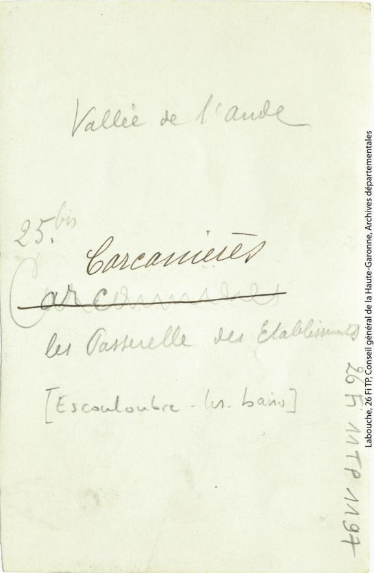 Vallée de l'aude
25.bis
Carcanières
Carcannières
les Passerelle des Etablissements
[Escouloubre-les-bains]
26 Fi 11 TP 1197
Labouche, 26 FI TP, Conseil général de la Haute-Garonne, Archives départementales